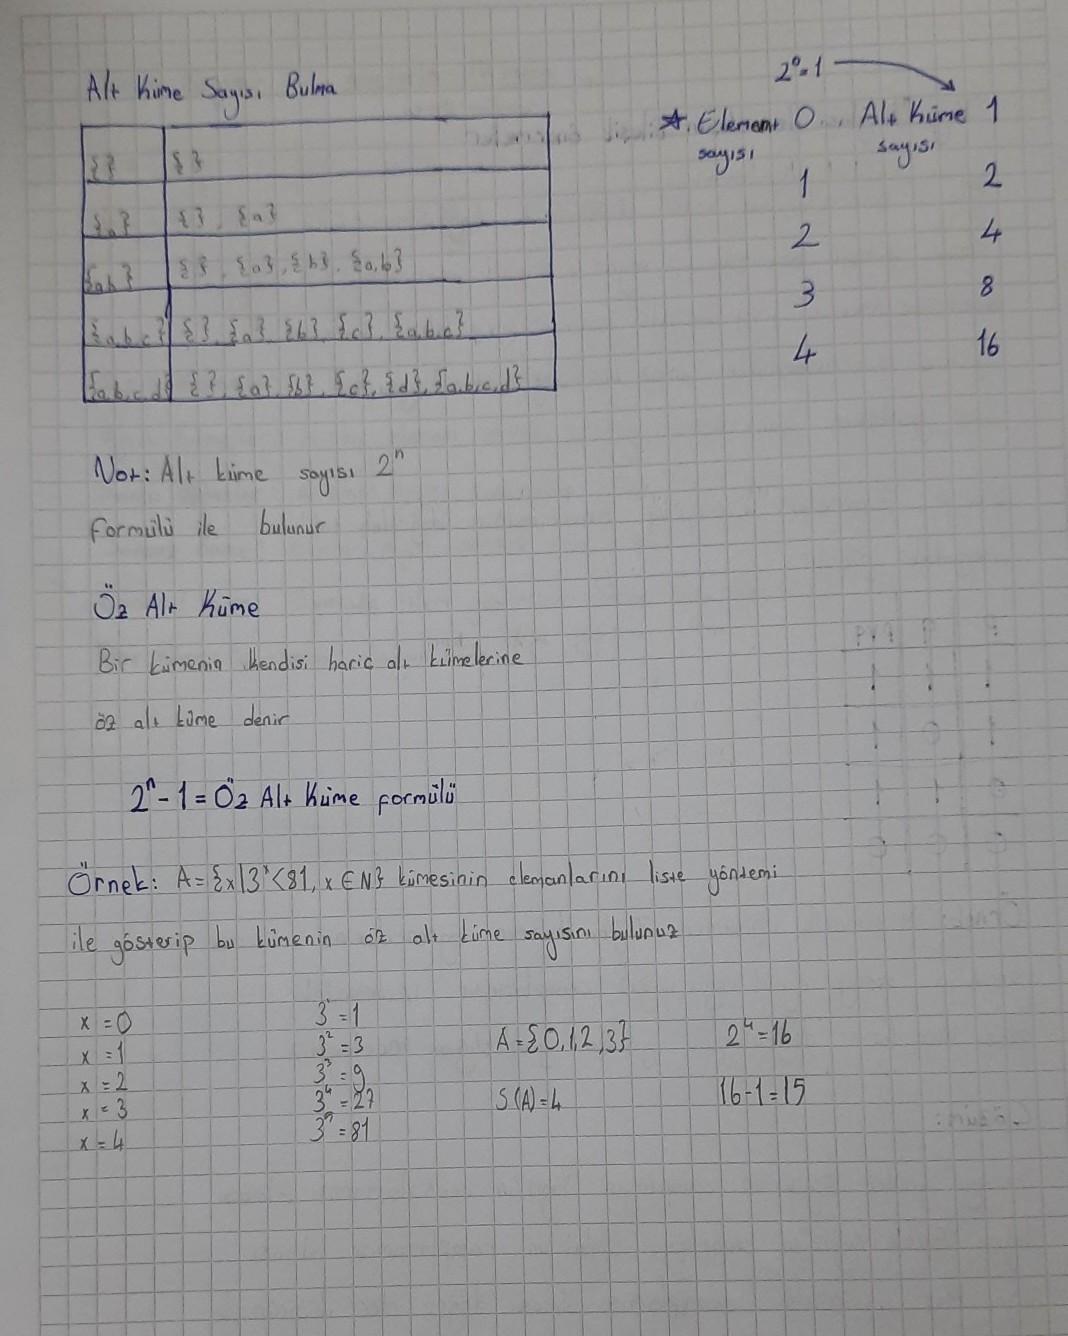 Alt Küme Sayısı Bulma
{} {}
{a} {}, {a}
{a,b} {}, {a}, {b}, {a,b}
{a,b,c} {}, {a}, {b}, {c}, {a,b,c}
{a,b,c,d} {}, {a}, {b}, {c}, {d}, {a,b,c,d}
2⁰=1
☆. Element 0. Alt Küme 1
sayısı sayısı
1 2
2 4
3 8
4 16
Not: Alt küme sayısı 2ⁿ
formülü ile bulunur
Öz Alt Küme
Bir kümenin kendisi hariç alt kümelerine
öz alt küme denir
2ⁿ-1=Öz Alt Küme formülü
Örnek: A={x|3ˣ<81, x∈N} kümesinin elemanlarını liste yöntemi
ile gösterip bu kümenin öz alt küme sayısını bulunuz
x=0 3¹=1
x=1 3²=3 A={0,1,2,3} 2⁴=16
x=2 3³=9
x=3 3⁴=27 S(A)=4 16-1=15
x=4 =81